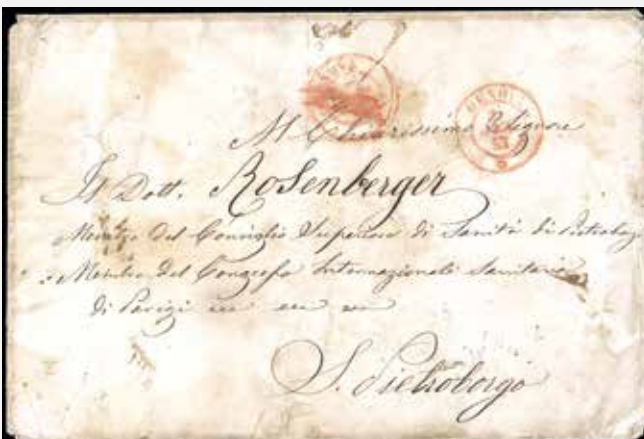 GENOVA
Al Chiarissimo Signore
Il Dott. Rosenberger
Membro del Consiglio Superiore di Sanità di Pietroborgo
Membro del Congresso Internazionale Sanitario
di Parigi
S. Pietroborgo